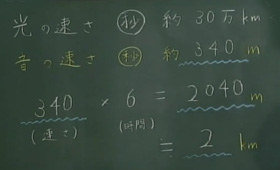 光の速さ 秒 約30万km
音の速さ 秒 約340m
340 × 6 = 2040m
(速さ) (時間)
≒ 2km